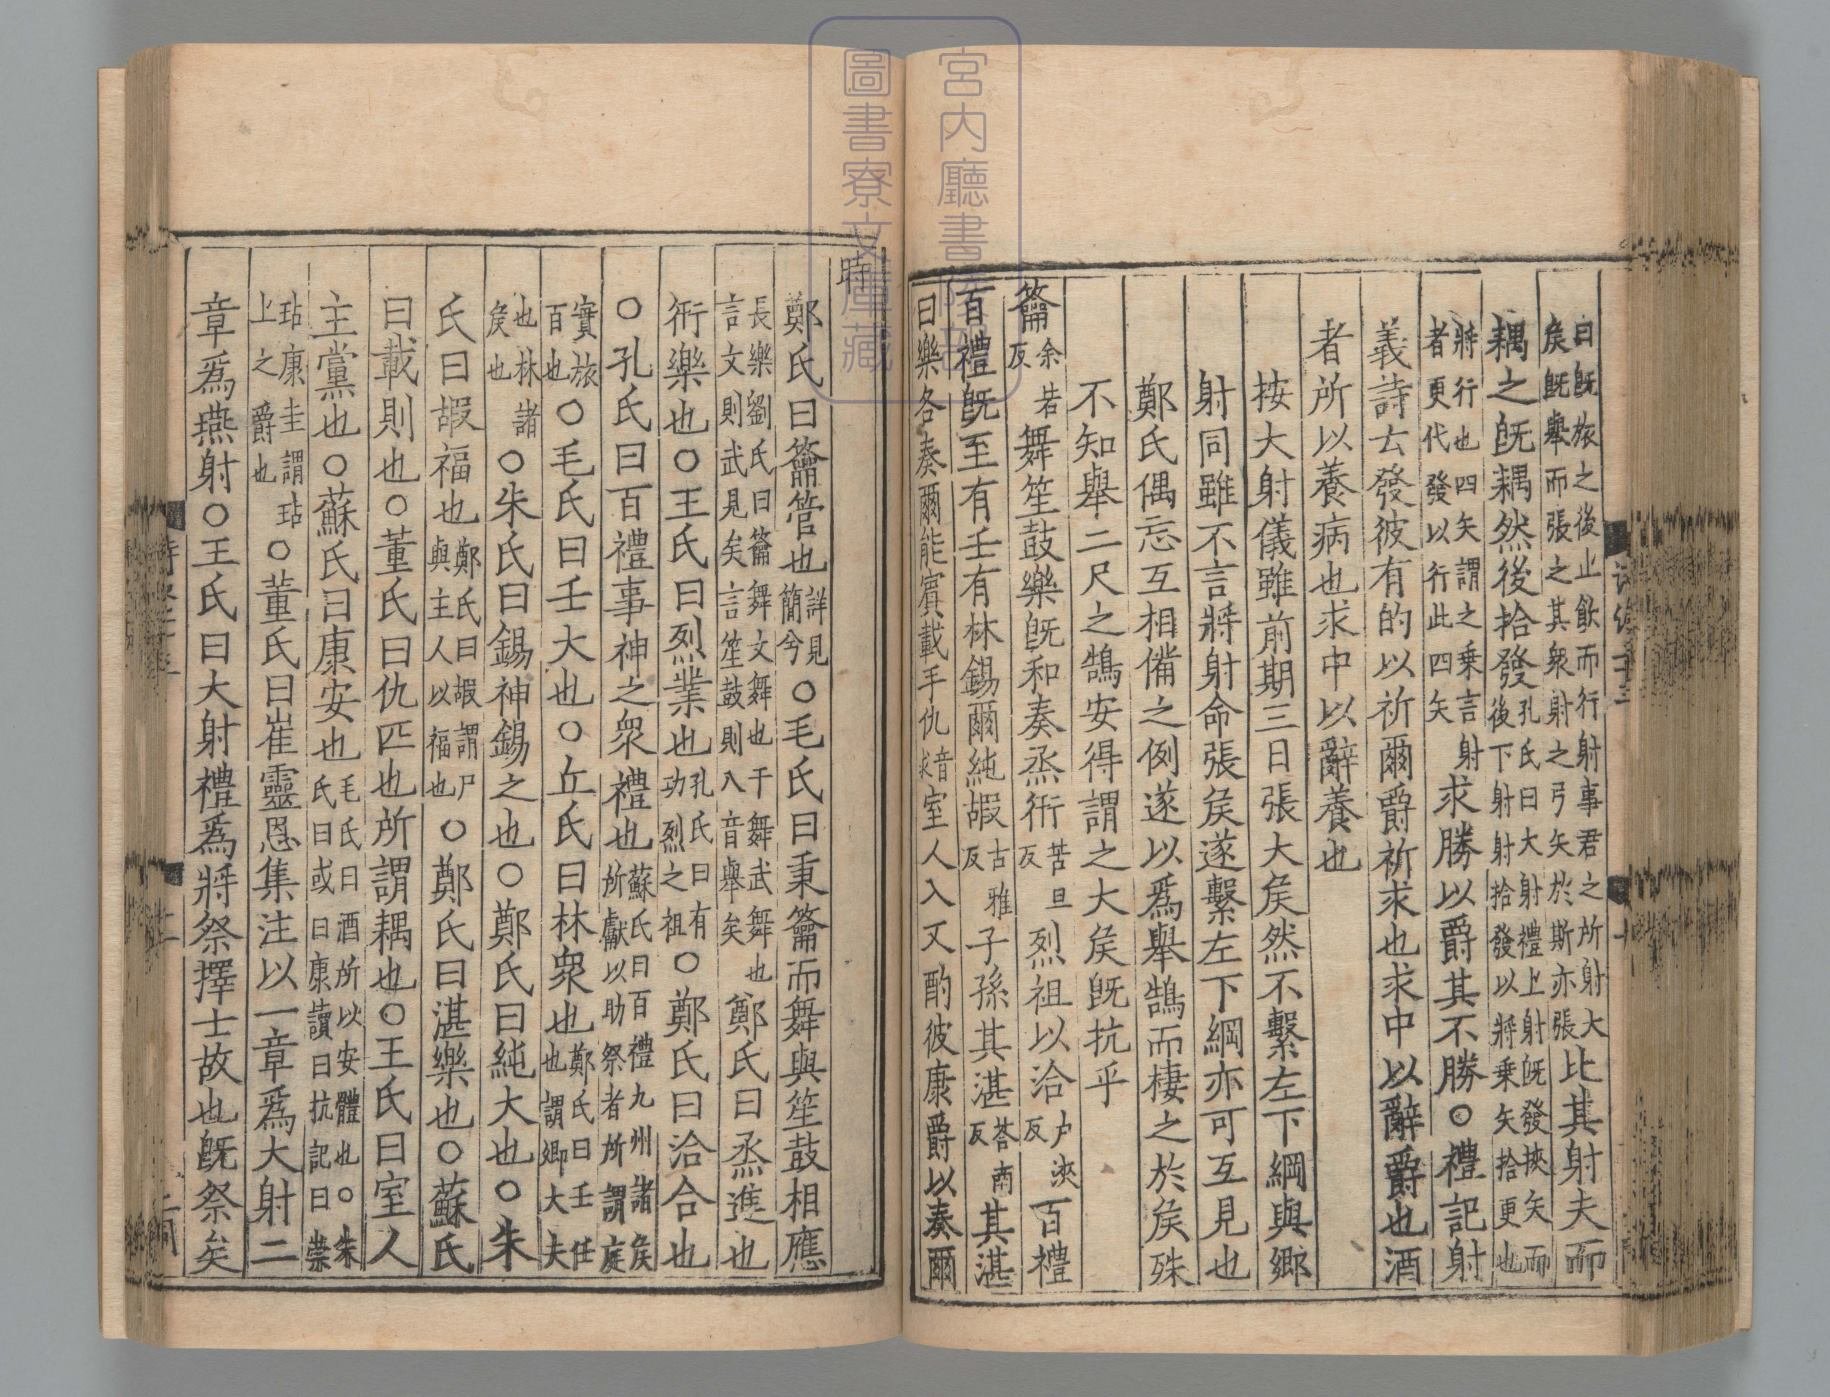 曰旣旅之後止飮而行射事君之所射大矦旣舉而張之其衆射之弓矢於斯亦張比其射夫而
耦之旣耦然後拾發孔氏曰大射禮上射旣發挾矢而後下射射拾發以將乗矢拾更也
將行也四矢謂之乗言射者更代發以行此四矢求勝以爵其不勝○禮記射
義詩云發彼有的以祈爾爵祈求也求中以辭爵也酒
者所以養病也求中以辭養也
按大射儀雖前期三日張大矦然不繫左下綱與郷
射同雖不言將射命張矦遂繫左下綱亦可互見也
鄭氏偶忘互相備之例遂以爲舉鵠而棲之於矦殊
不知舉二尺之鵠安得謂之大矦旣抗乎
籥余若反舞笙鼓樂旣和奏烝衎苦旦反烈祖以洽户浹反百禮
百禮旣至有壬有林錫爾純嘏古雅反子孫其湛荅南反其湛
曰樂各奏爾能賔載手仇音求室人入又酌彼康爵以奏爾
時
鄭氏曰籥管也詳見簡兮○毛氏曰秉籥而舞與笙鼓相應
長樂劉氏曰籥舞文舞也干舞武舞也言文則武見矣言笙鼓則八音舉矣鄭氏曰烝進也
衎樂也○王氏曰烈業也孔氏曰有功烈之祖○鄭氏曰洽合也
○孔氏曰百禮事神之衆禮也蘇氏曰百禮九州諸矦所獻以助祭者所謂庭
實旅百也○毛氏曰壬大也○丘氏曰林衆也鄭氏曰壬任也謂卿大夫
也林諸矦也○朱氏曰錫神錫之也○鄭氏曰純大也○朱
氏曰嘏福也鄭氏曰嘏謂尸與主人以福也○鄭氏曰湛樂也○蘇氏
曰載則也○董氏曰仇匹也所謂耦也○王氏曰室人
主黨也○蘇氏曰康安也毛氏曰酒所以安體也○朱氏曰或曰康讀曰抗記曰崇
坫康圭謂坫上之爵也○董氏曰崔靈恩集注以一章爲大射二
章爲燕射○王氏曰大射禮爲將祭擇士故也旣祭矣
宮内廳書陵部
圖書寮文庫藏